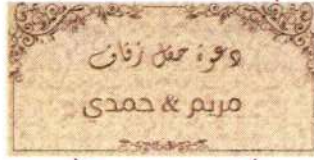 دعوة حفل زفاف
مريم & حمدي